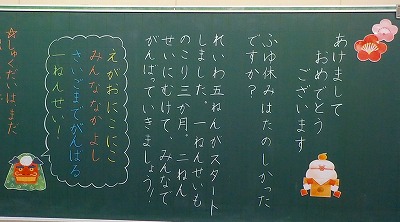 あけまして
おめでとう
ございます
ふゆ休みはたのしかった
ですか?
れいわ五ねんがスタート
しました。一ねんせいも
のこり三か月。二ねん
せいにむけて、みんなで
がんばっていきましょう!
えがおにこにこ
みんななかよし
さいごまでがんばる
一ねんせい!
☆しゅくだいは、まだ